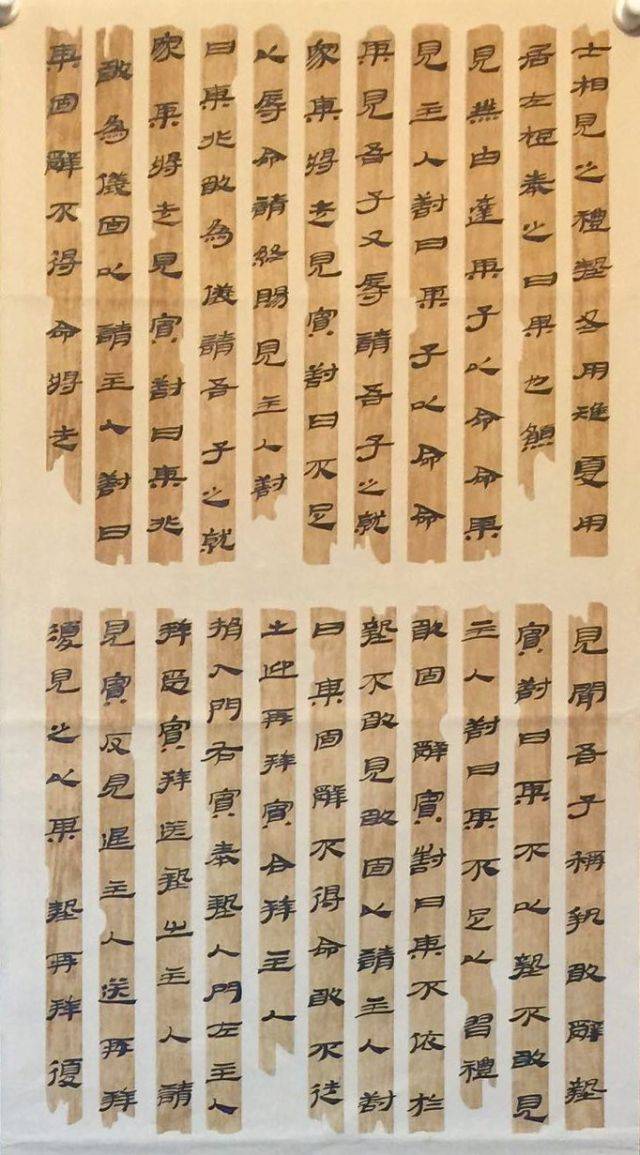 士相見之禮墊冬用雉夏用
居左梪奉之曰某也願
見無由達某子以命命某
見主人對曰某子以命命
某見吾子又辱請吾子之就
家某將走見賓對曰不足
以辱命請終賜見主人對
曰某非敢為儀請吾子之就
家某將走見賓對曰某非
敢為儀固以請主人對曰
某固辭不得命將走
見聞吾子稱執敢辭墊
賓對曰某不以墊不敢見
主人對曰某不足以習禮
敢固辭賓對曰某不依於
墊不敢見敢固以請主人對
曰某固辭不得命敢不從
出迎再拜賓合拜主人
揖入門右賓奉墊入門左主人
拜受賓拜送墊出主人請
見賓反見退主人送再拜
復見之以某墊再拜復